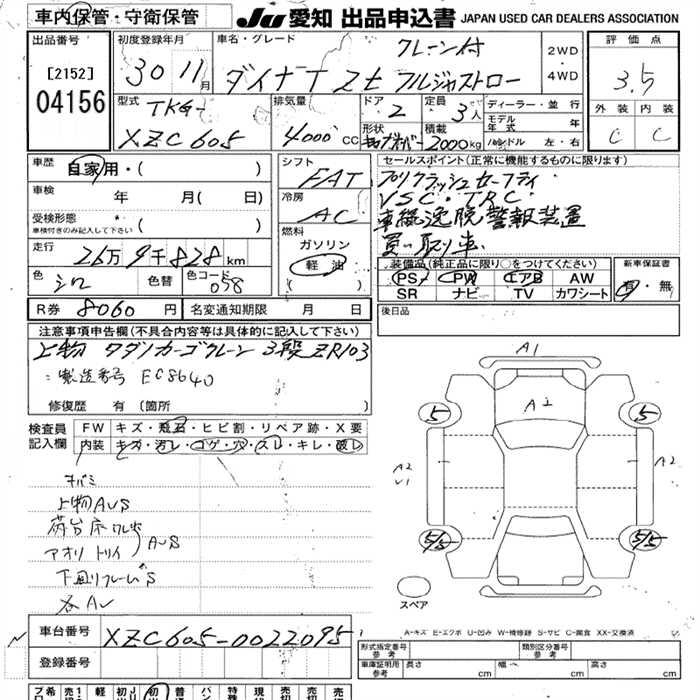 車内保管・守衛保管
JU 愛知 出品申込書 JAPAN USED CAR DEALERS ASSOCIATION
出品番号
[2152]
04156
初度登録年月
30 11月
車名・グレード
クレーン付
ダイナT Zt フルジャストロー
2WD
4WD
評価点
3.5
外装 内装
C C
型式
TKG-
XZC605
排気量
4000cc
ドア
2
定員
3人
形状
積載
2000kg
ディーラー・並行
モデル年式 年
ハンドル 左・右
車歴
自家用・( )
車検
年 月( 日)
受検形態
車検付きのみ記入して下さい
走行
26万9千828km
色
シロ
色替
色コード
058
シフト
FAT
冷房
AC
燃料
ガソリン
軽油
( )
セールスポイント(正常に機能するものに限ります)
プリクラッシュセーフティ
VSC・TRC・
車線逸脱警報装置
買い取り車
装備品(純正品に限り○をつけてください)
PS PW エアB AW
SR ナビ TV カワシート
新車保証書
有・無
後日品
R券 8060円
名変通知期限 月 日
注意事項申告欄(不具合内容等は具体的に記入して下さい)
上物 タダノカーゴクレーン 3段 ZR103
製造番号 EC8640
修復歴 有(箇所 )
検査員
記入欄
FW キズ・飛石・ヒビ割・リペア跡・X要
内装 キズ・汚レ・コゲ・穴・スレ・キレ・破レ
キバミ
上物AUS
荷台床ワレ
アオリ トリイ
AUS
下回リフレームS
各AU
A1
A2
5
5
A2
U1
A2
5/5
5/5
スペア
A-キズ E-エクボ U-凹み W-補修跡 S-サビ C-腐食 XX-交換済
車台番号 XZC605-0022095
登録番号
形式指定番号
参考
類別区分番号
参考
車庫証明用
参考
長さ cm 幅 cm 高さ cm